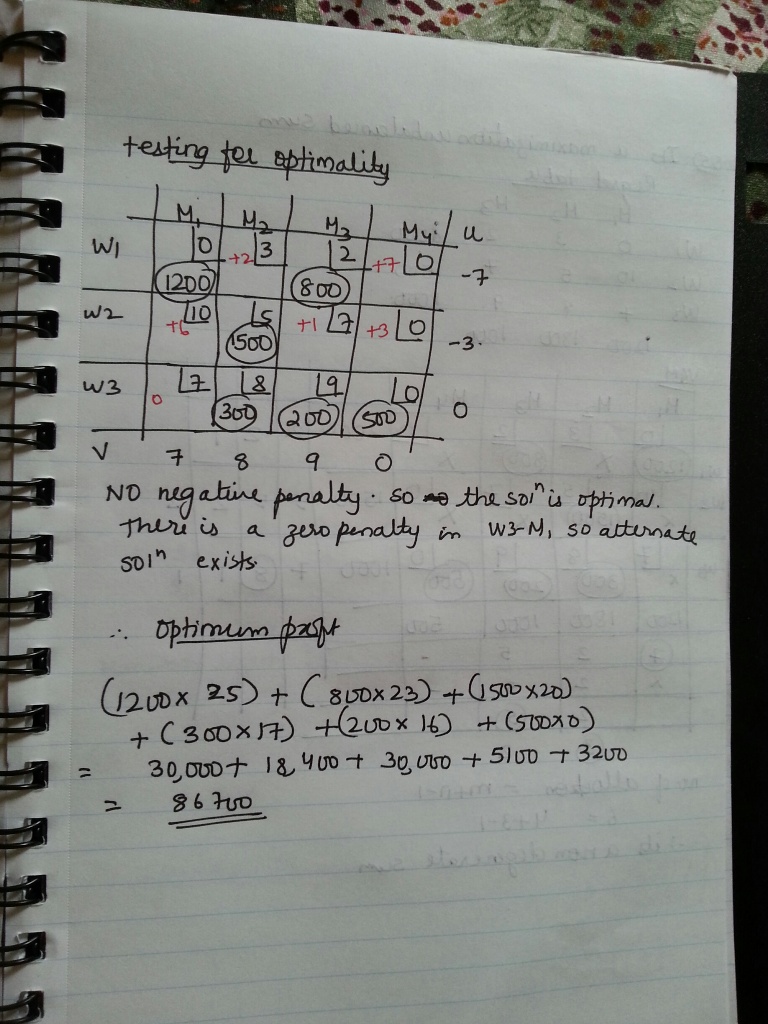 testing for optimality
M1 M2 M3 M4 u
W1 0 +2 3 2 +7 0 -7
1200 800
W2 +6 10 5 +1 7 +3 0 -3
1500
W3 0 7 8 9 0 0
300 200 500
V 7 8 9 0
NO negative penalty. so the solⁿ is optimal.
There is a zero penalty in W3-M1 so alternate
solⁿ exists.
∴ Optimum profit
(1200 x 25) + (800 x 23) + (1500 x 20)
+ (300 x 17) + (200 x 16) + (500 x 0)
= 30,000 + 18,400 + 30,000 + 5100 + 3200
= 86700